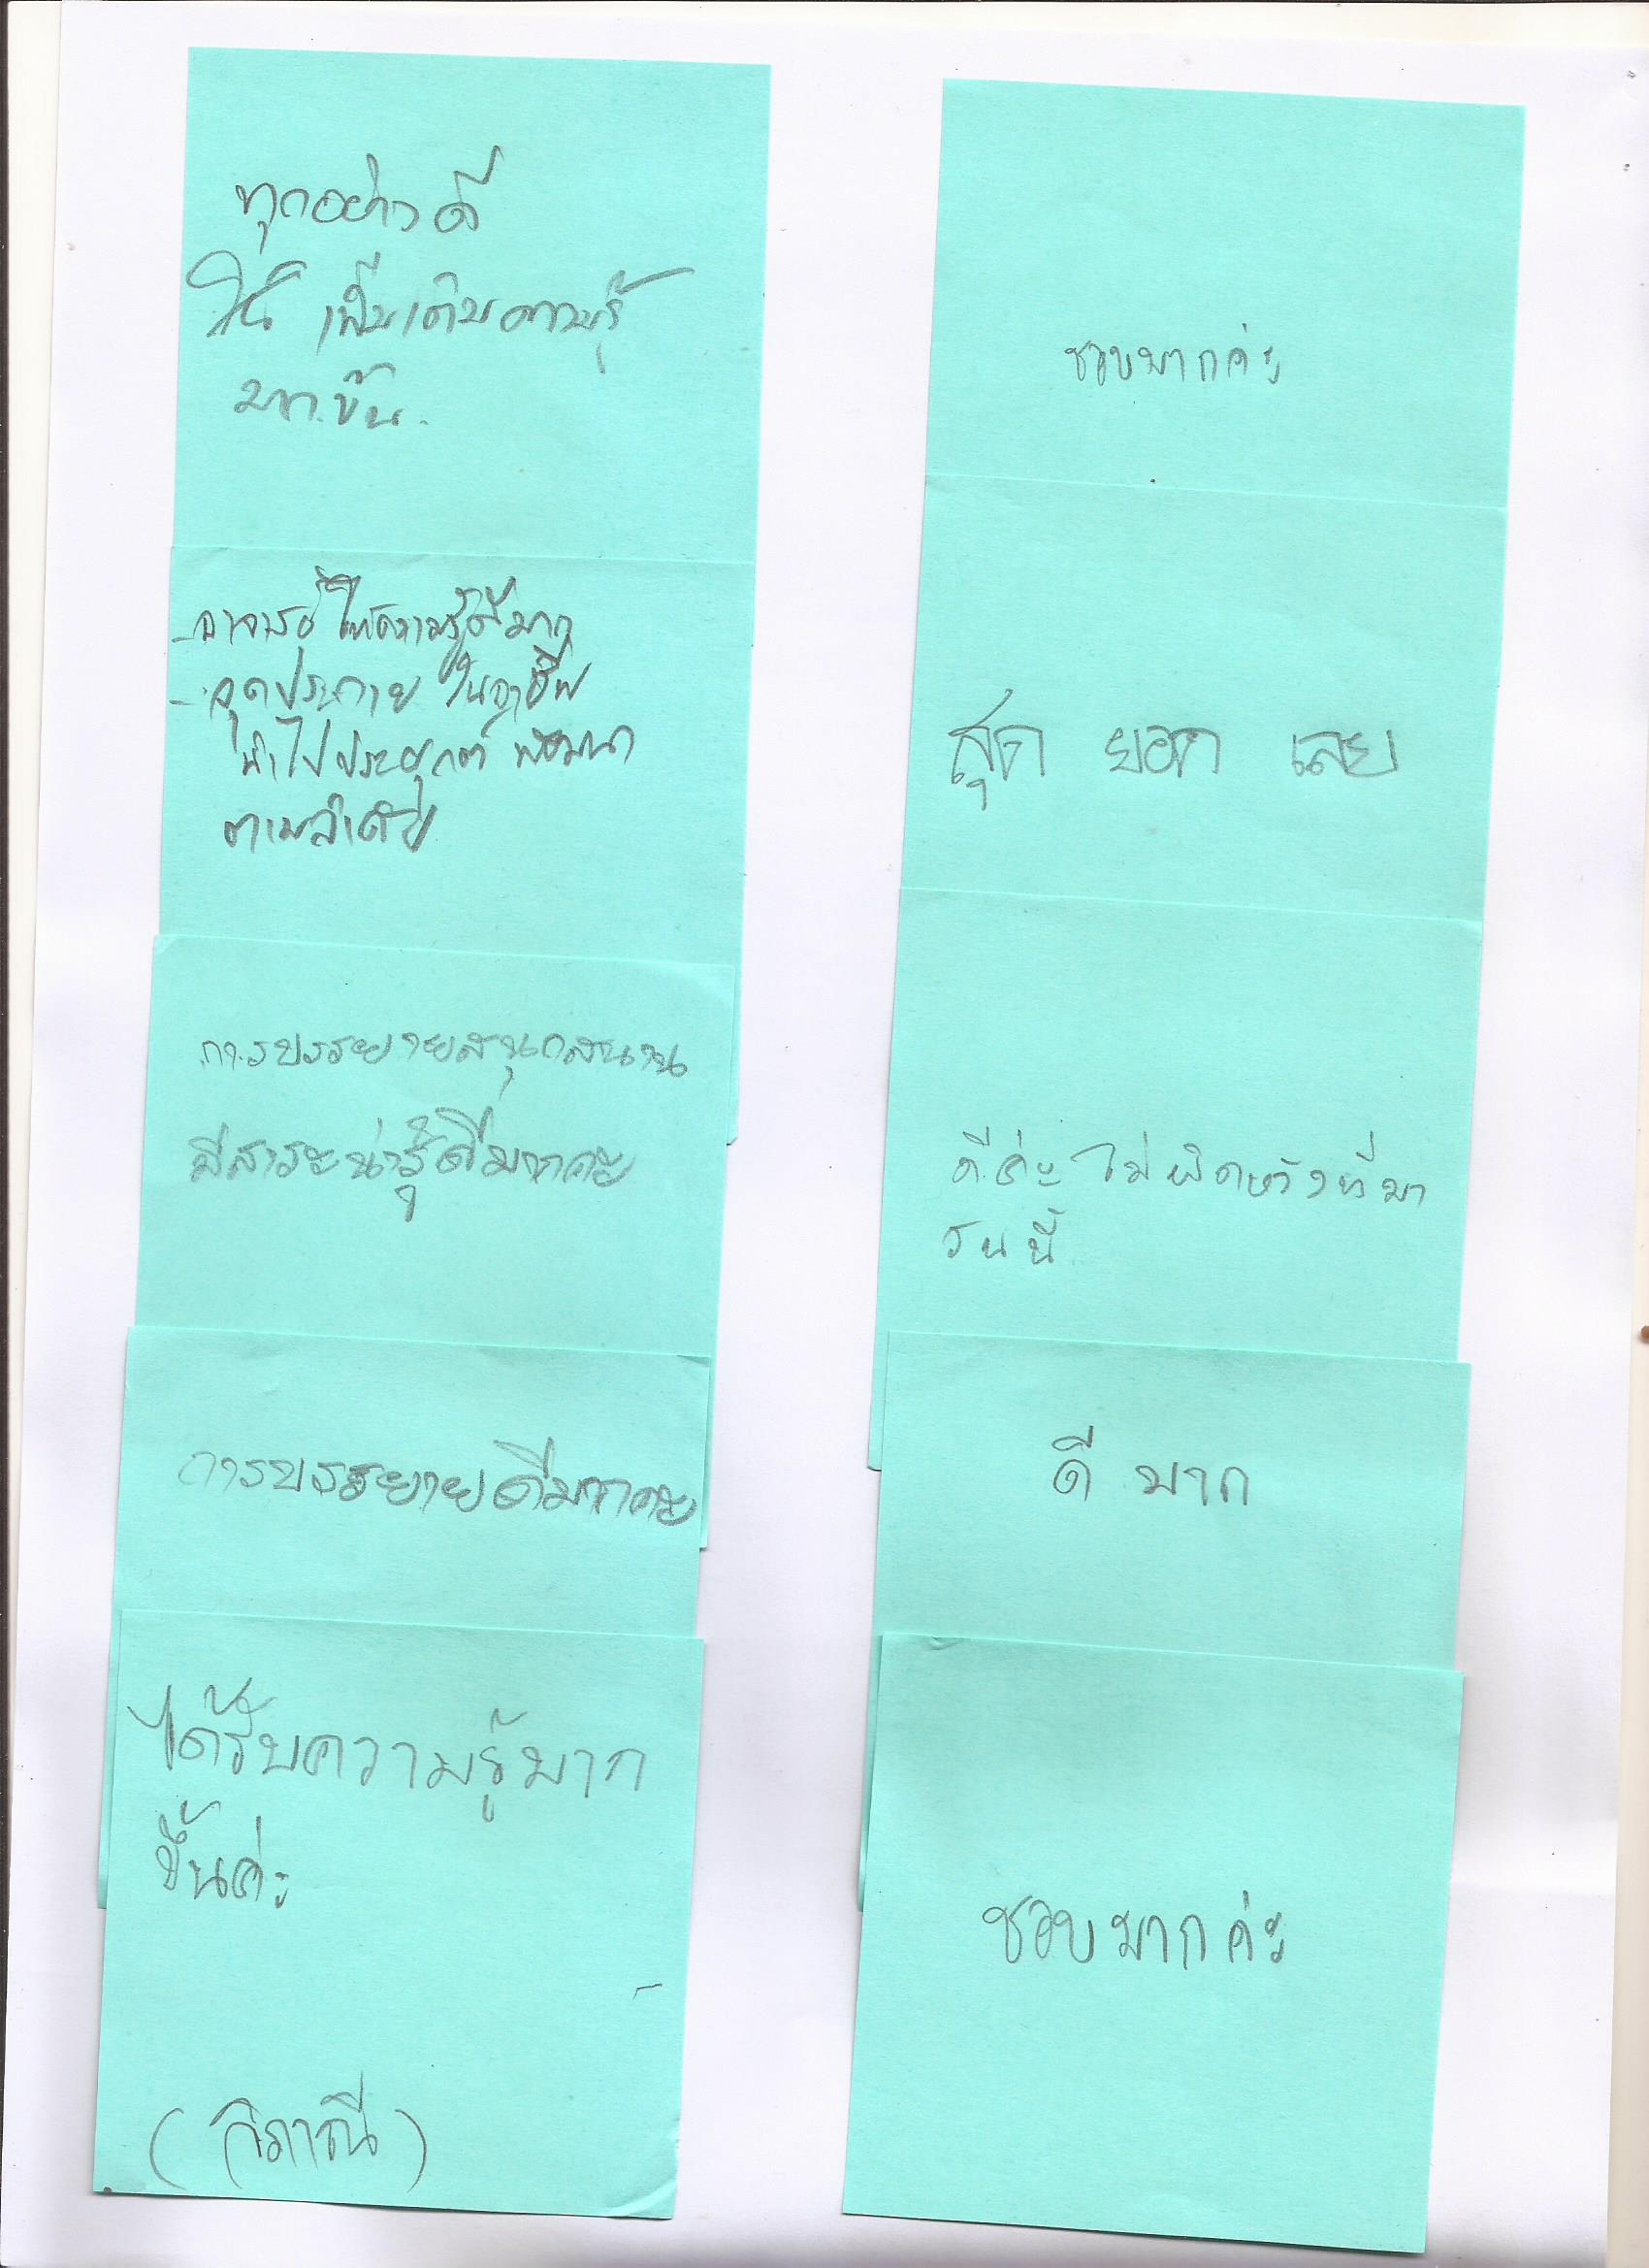 ทุกอย่างดี
ให้ เพิ่มเติมความรู้
มากขึ้น.
- อาจารย์ให้ความรู้ดีมาก
- จุดประกาย ในอาชีพ
นำไปประยุกต์ พัฒนา
ตามลำดับ
การบรรยายสนุกสนาน
มีสาระน่ารู้ดีมากคะ
การบรรยายดีมากคะ
ได้รับความรู้มาก
ขึ้นค่ะ
ชอบมากค่ะ
สุด ยอด เลย
ดีค่ะ ไม่ผิดหวังที่มา
วันนี้
ดี มาก
ชอบมากค่ะ